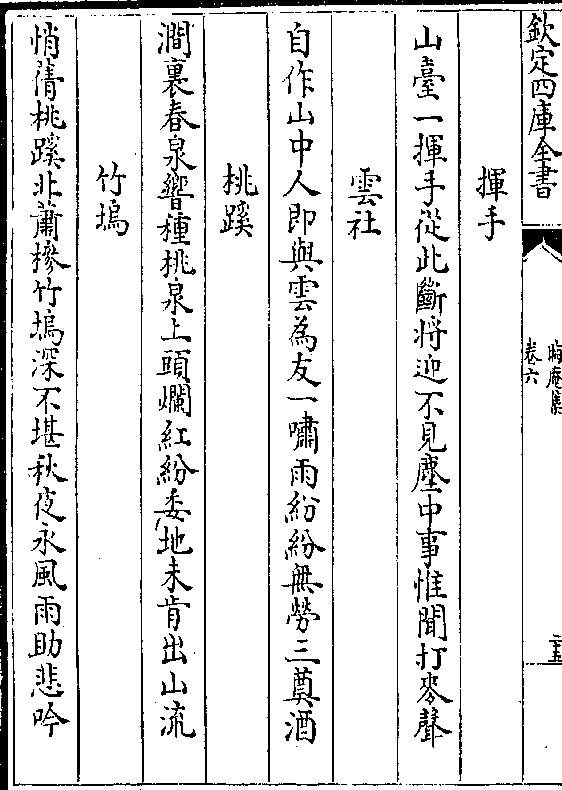 欽定四庫全書
晦庵集
卷六
揮手
山臺一揮手從此斷將迎不見塵中事惟聞打麥聲
雲社
自作山中人即與雲為友一嘯雨紛紛無勞三奠酒
桃蹊
澗裏春泉響種桃泉上頭爛紅紛委地未肯出山流
竹塢
悄蒨桃蹊北蕭槮竹塢深不堪秋夜永風雨助悲吟